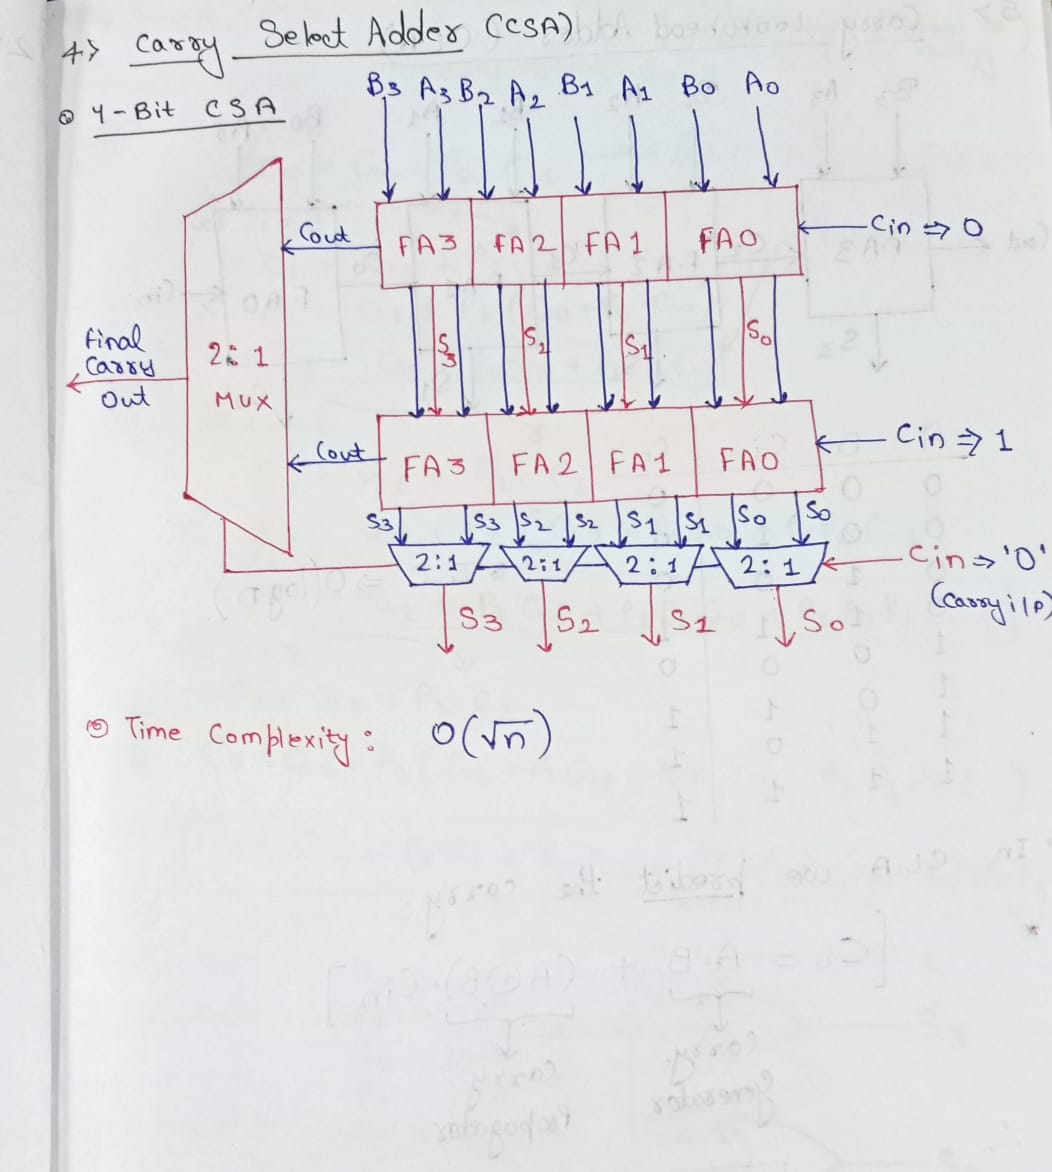 4.> Carry Select Adder (CSA)
4-Bit CSA
B3 A3 B2 A2 B1 A1 B0 A0
Cout FA3 FA2 FA1 FA0 Cin ⇒ 0
S3 S2 S1 S0
Final
Carry
Out
2:1
MUX
Cout FA3 FA2 FA1 FA0 Cin ⇒ 1
S3 S3 S2 S2 S1 S1 S0 S0
2:1 2:1 2:1 2:1 Cin ⇒ '0'
(Carry i/p)
S3 S2 S1 S0
Time Complexity: O(√n)